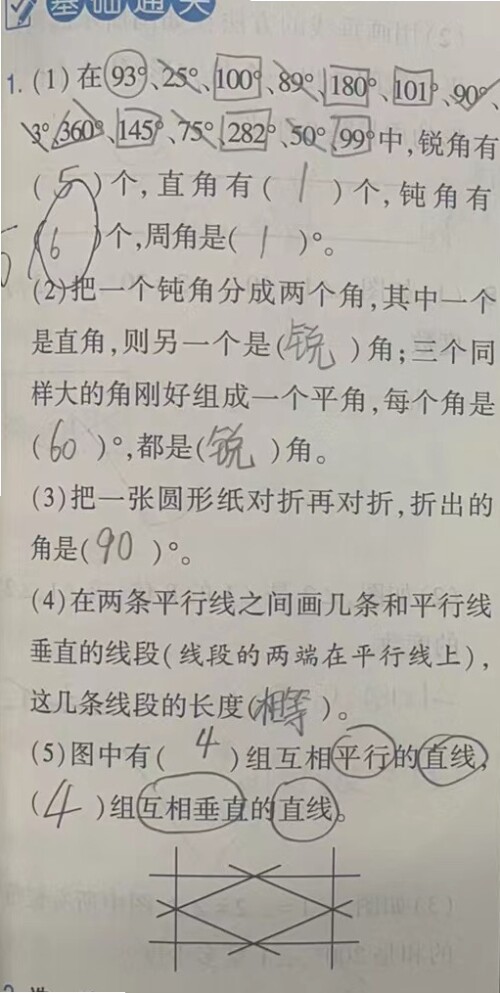 基础通关
1. (1)在93°、25°、100°、89°、180°、101°、90°、
3°、360°、145°、75°、282°、50°、99°中,锐角有
(5)个,直角有(1)个,钝角有
(6)个,周角是(1)°。
(2)把一个钝角分成两个角,其中一个
是直角,则另一个是(锐)角;三个同
样大的角刚好组成一个平角,每个角是
(60)°,都是(锐)角。
(3)把一张圆形纸对折再对折,折出的
角是(90)°。
(4)在两条平行线之间画几条和平行线
垂直的线段(线段的两端在平行线上),
这几条线段的长度(相等)。
(5)图中有(4)组互相平行的直线,
(4)组互相垂直的直线。